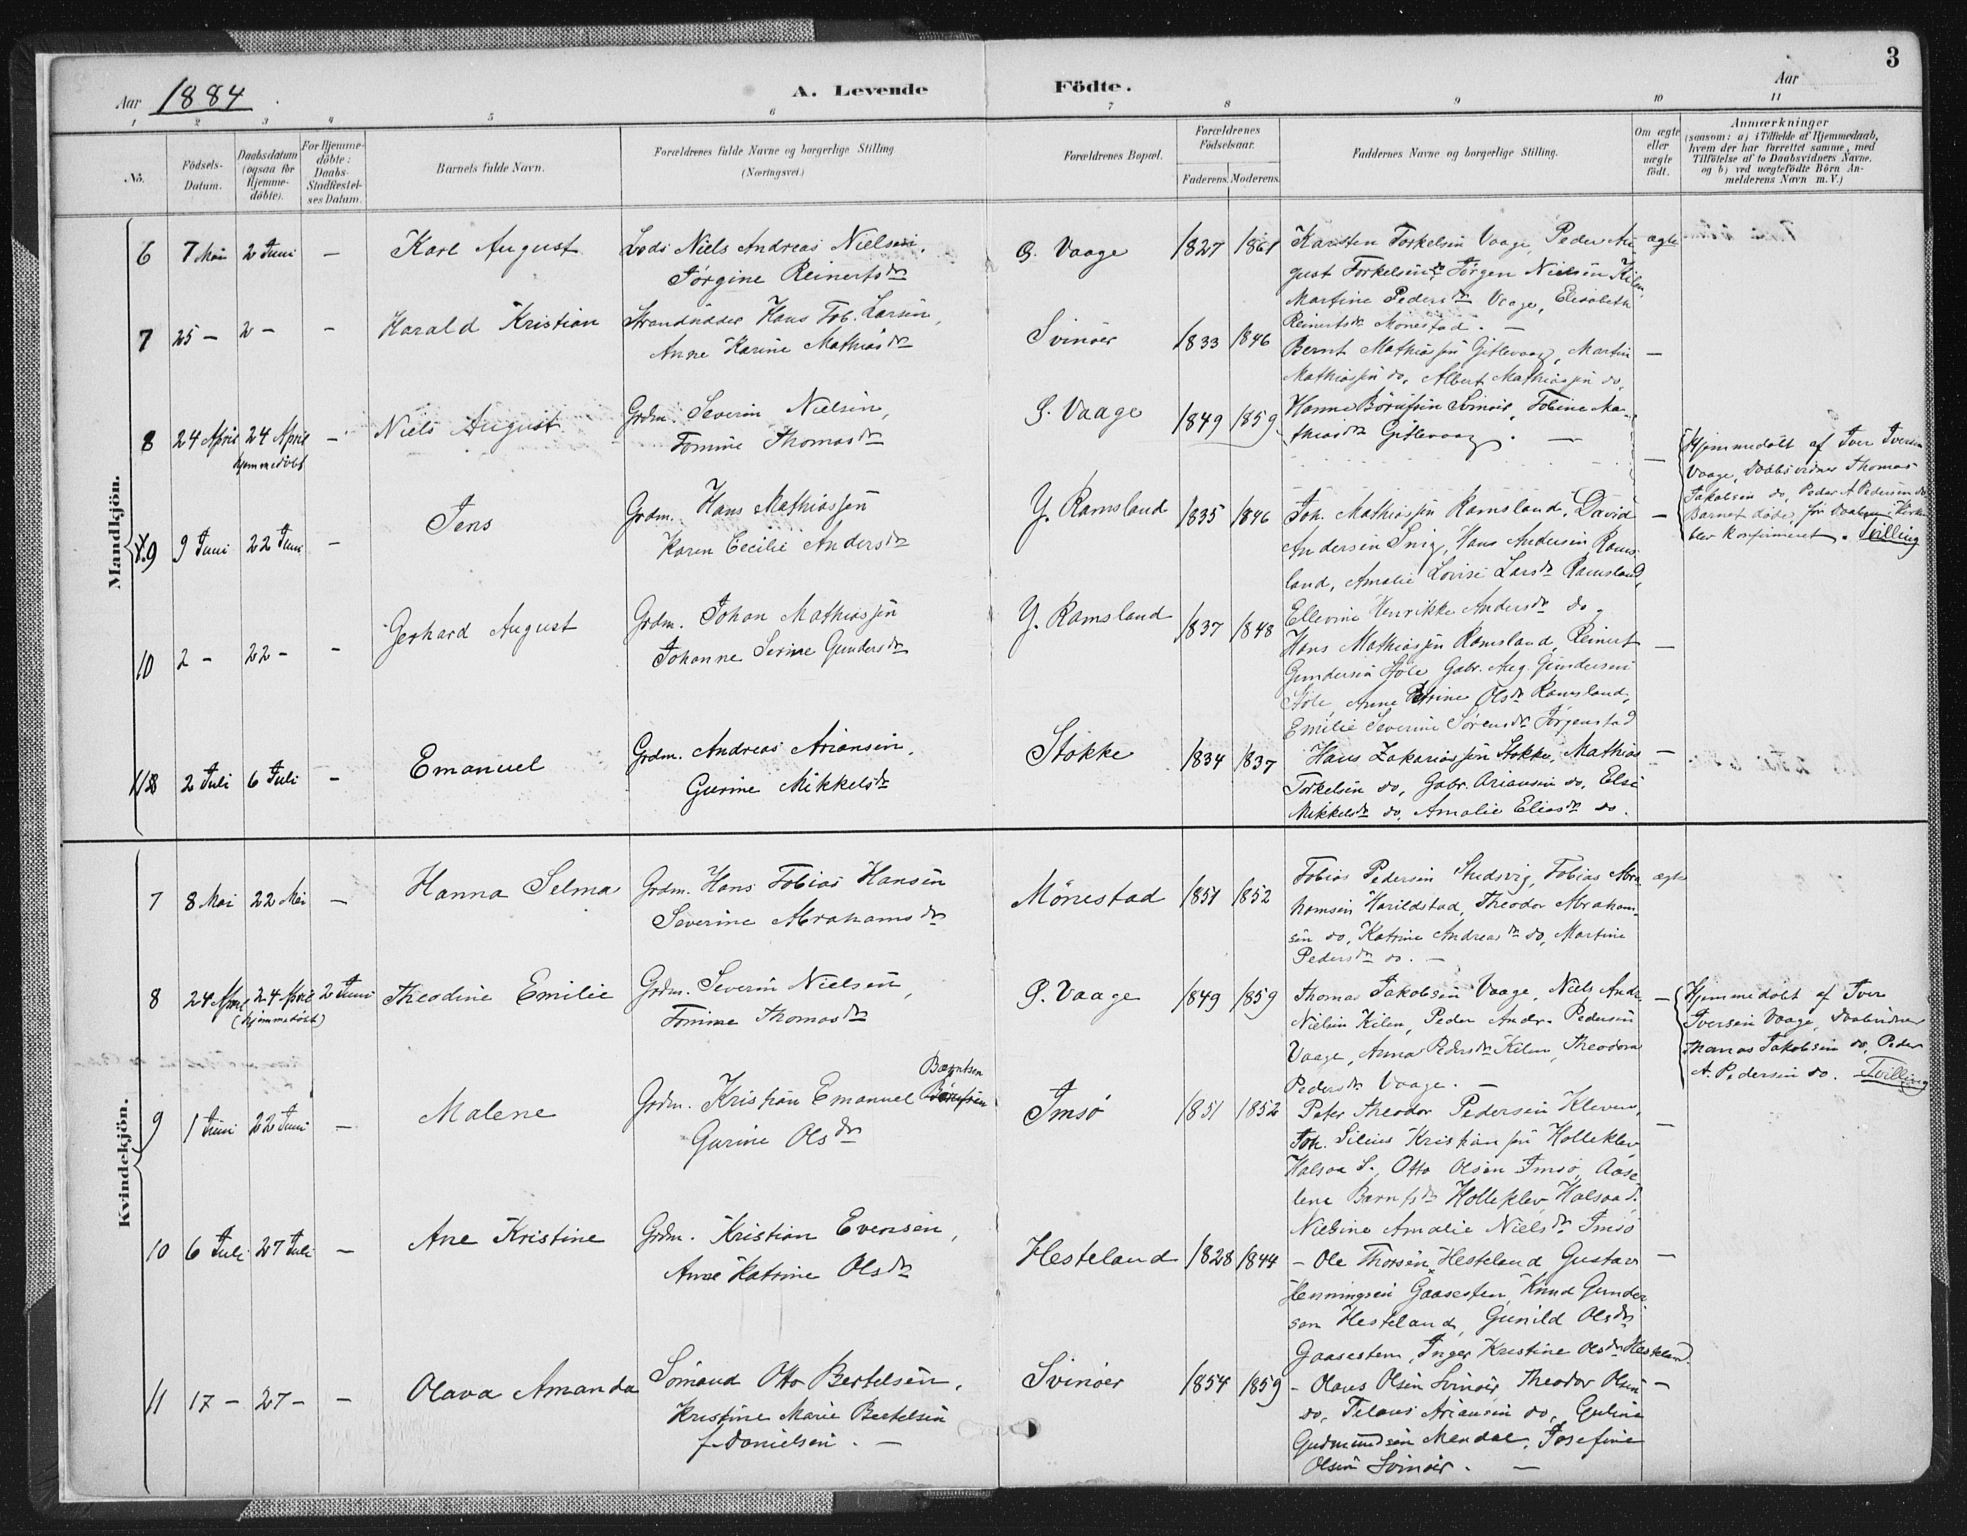 3
Aar 1884
A. Levende Födte.
Aar
1 2 3 4 5 6 7 8 9 10 11
No.
Födsels-Datum.
Daabsdatum (ogsaa for Hjemmedöbte).
For Hjemmedöbte: Daabs-Stadfæstelses Datum.
Barnets fulde Navn.
Forældrenes fulde Navne og borgerlige Stilling (Næringsvei.)
Forældrenes Bopæl.
Forældrenes Födselsaar.
Faderens. Moderens.
Faddernes Navne og borgerlige Stilling.
Om ægte eller uægte födt.
Anmærkninger
(saasom: a) i Tilfælde af Hjemmedaab,
hvem der har forrettet samme, med
Tilföielse af to Daabsvidners Navne,
og b) ved uægtefödte Börn An-
melderens Navn m. V.)
Mandkjön.
6 7 Mai 2 Juni — Karl August
Lods Niels Andreas Nielsen,
Jørgine Reinertsdr
G. Vaage 1827 1861
Karsten Torkelsen Vaage, Peder Au- ægte
gust Torkelsen do, Jørgen Nielsen Kilen,
Martine Pedersdr Vaage, Elisabeth
Reinertsdr Monestad. —
7 25 — 2 — — Harald Kristian
Strandsidder Hans Tob. Larsen,
Anne Karine Mathiasdr
Svinøer 1833 1846
Bernt Mathiassen Gitlevaag, Martin —
Mathiassen do, Albert Mathiassen do,
Hanne Børufsen Svinøer, Tobine Ma-
thiasdr Gitlevaag. —
8 24 April 24 April hjemmedøbt — Niels August
Grdm. Severin Nielsen,
Tomine Thomasdr
G. Vaage 1849 1859 —
Hjemmedøbt af Iver Iversen
Vaage, Daabsvidner Thomas
Jakobsen do, Peder A Pedersen do
Barnet døde, før Daaben i Kirken
blev konfirmeret. Tvilling
9 9 Juni 22 Juni — Jens
Grdm. Hans Mathiassen
Karen Cecilie Andersdr
Y. Ramsland 1835 1846
Joh. Mathiassen Ramsland, David —
Andersen Snig, Hans Andersen Rams-
land, Amalie Lovise Larsdr Ramsland,
Ellevine Henrikke Andersdr do.
10 2 — 22 — — Gerhard August
Grdm. Johan Mathiassen
Johanne Serine Gundersdr
Y. Ramsland 1837 1848
Hans Mathiassen Ramsland, Reinert —
Gundersen Støle, Gabr. Aug. Gundersen
Støle, Anne Petrine Olsdr Ramsland,
Emilie Severine Sørensdr Jørgenstad
11 2 Juli 6 Juli — Emanuel
Grdm. Andreas Ariansen,
Gurine Mikkelsdr
Stokke 1834 1837
Hans Zakariassen Stokke, Mathias —
Torkelsen do, Gabr. Ariansen do, Else
Mikkelsdr do, Amalie Eliasdr do.
Kvindekjön.
7 8 Mai 22 Mai — Hanna Selma
Grdm. Hans Tobias Hansen
Severine Abrahamsdr
Mönestad 1851 1852
Tobias Pedersen Studsvig, Tobias Abra- ægte
hamsen Harildstad, Theodor Abraham-
sen do, Katrine Andreasdr do, Martine
Pedersdr do. —
8 24 April 24 April (hjemmedøbt) 2 Juni Theodine Emilie
Grdm. Severin Nielsen,
Tomine Thomasdr
G. Vaage 1849 1859
Thomas Jakobsen Vaage, Niels Andr. —
Nielsen Kilen, Peder Andr. Pedersen
Vaage, Anna Pedersdr Kilen, Theodora
Pedersdr Vaage. —
Hjemmedøbt af Iver
Iversen Vaage, Daabvidner
Thomas Jakobsen do, Peder
A. Pedersen do. Tvilling
9 1 Juni 22 Juni — Malene
Grdm. Kristian Emanuel Berntsen
Gurine Olsdr
Imsø 1851 1852
Peter Theodor Pedersen Kleven, —
Joh. Silius Kristiansen Holleklev
Halsaa S., Otto Olsen Imsø, Aase
lene Barntsdr Holleklev Halsaa S.
Nielsine Amalie Nielsdr Imsø
10 6 Juli 27 Juli — Ane Kristine
Grdm. Kristian Evensen,
Anne Katrine Olsdr
Hesteland 1828 1844
— Ole Thorsen Hesteland, Gustav —
Henningsen Gaasesten, Knud Gunder-
sen Hesteland, Gunild Olsdr
Gaasesten, Inger Kristine Olsdr Hesteland.
11 17 — 27 — — Olava Amanda
Sømand Otto Bertelsen,
Kristine Marie Bertelsen
f. Danielsen. —
Svinøer 1854 1859
— Olaus Olsen Svinøer, Theodor Olsen —
do, Tilaus Ariansen do, Guline
Gudmundsen Mandal, Josefine
Olsen Svinøer. —